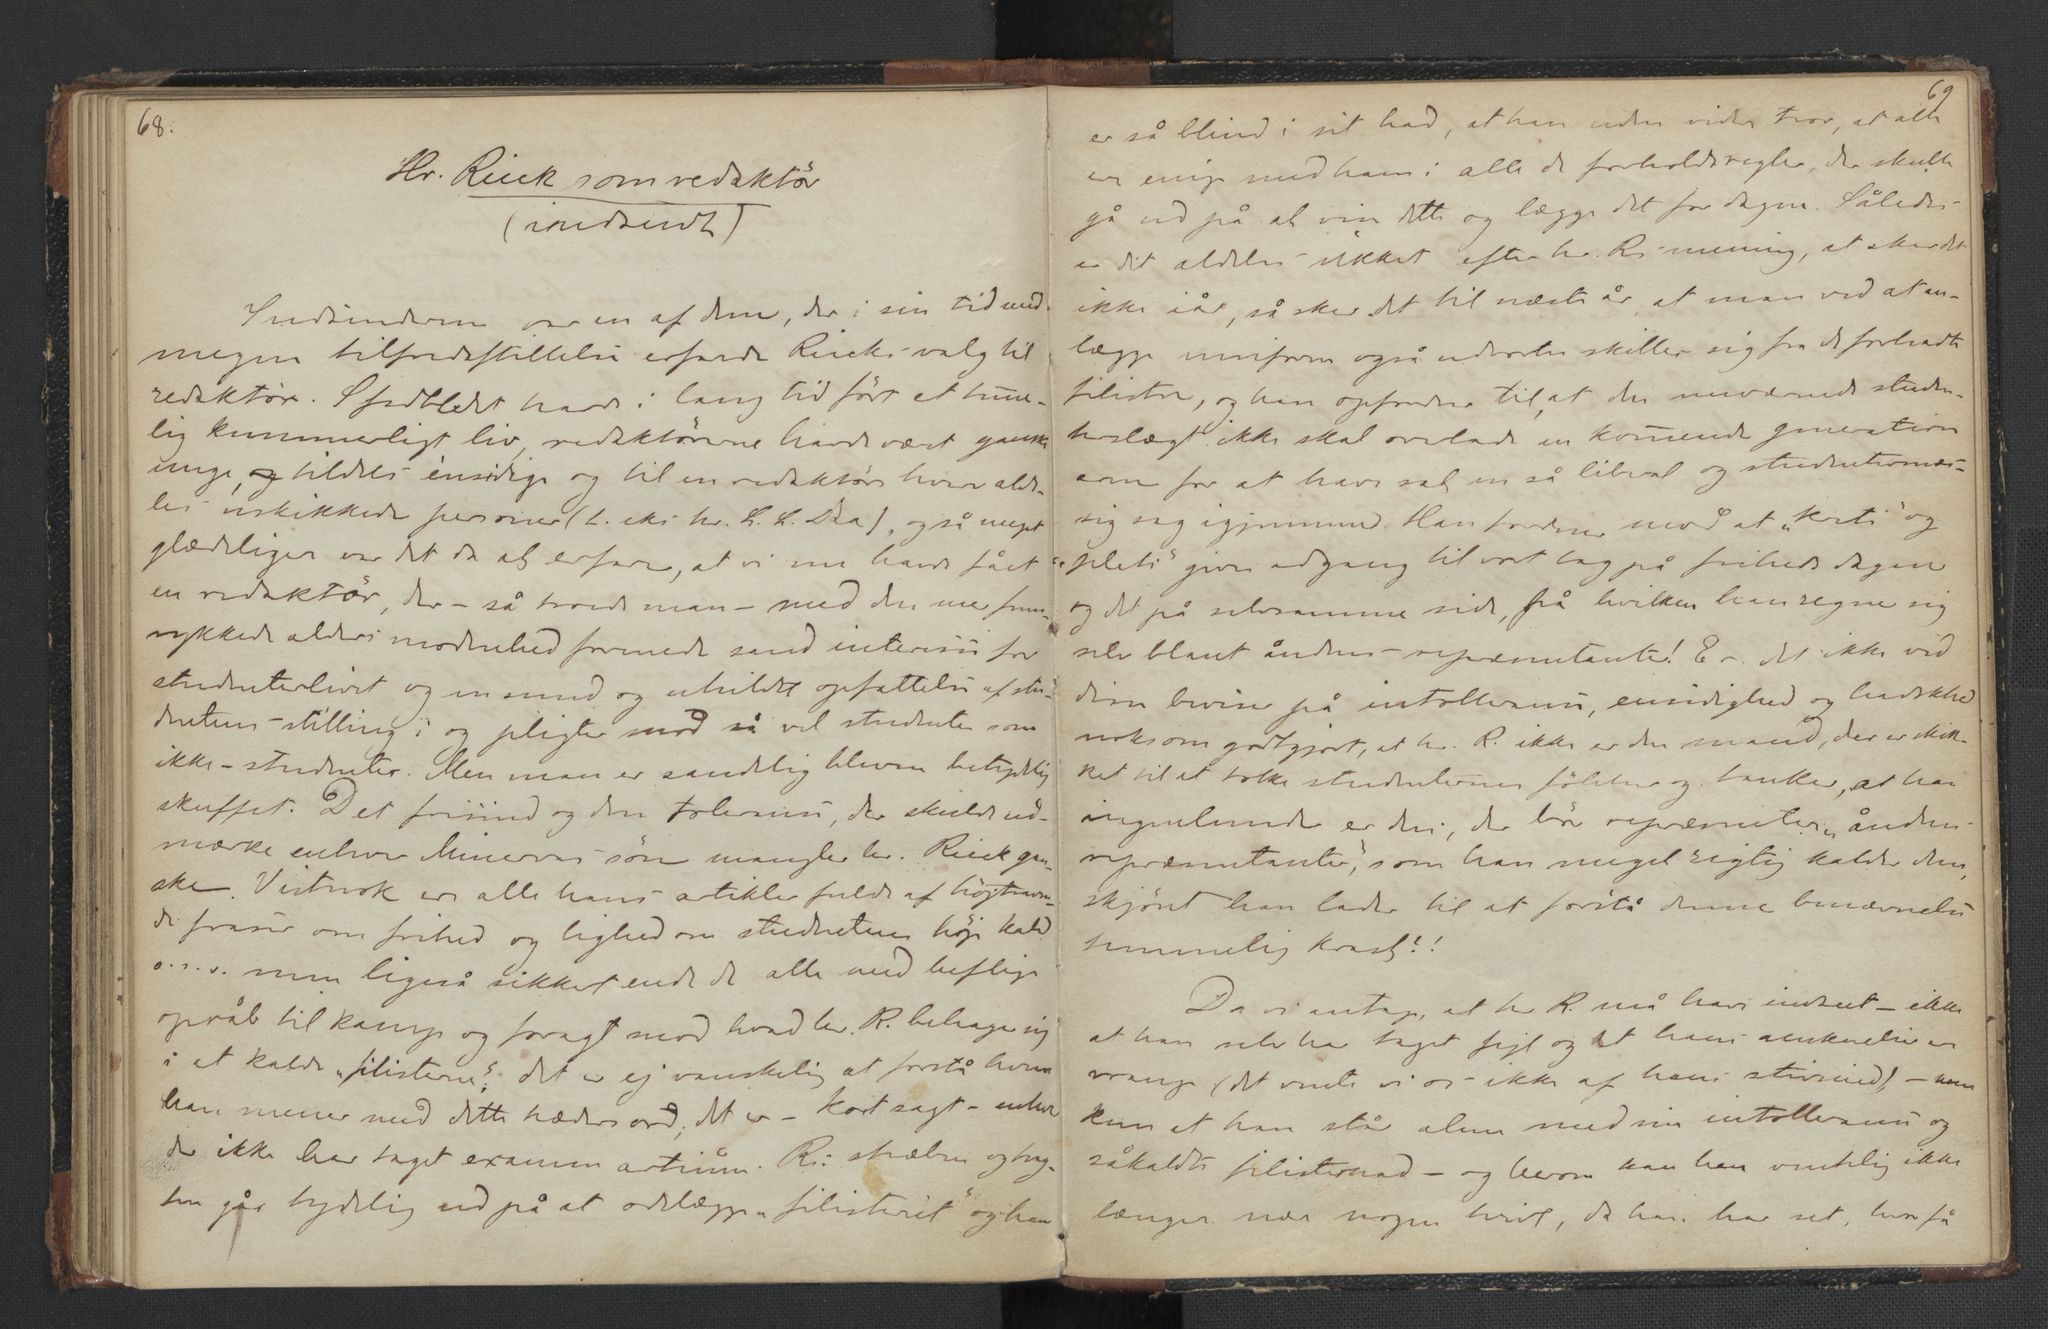 68.
Hr. Rieck som redaktör
(indsendt)
Indsenderen var en af dem, der i sin tid med
megen tilfredsstillelse erfarede Riecks valg til
redaktör. Spedbladet havde i lang tid fört et temme-
lig kummerligt liv, redaktörerne havde vært ganske
unge, og tildels ensidige og til en redaktörs hverv alde-
les uskikkede personer (t. eks. hr. L. L. Daa), og så meget
glædeligere var det da at erfare, at vi nu havde fået
en redaktör, der – så troede man – med den mer frem-
rykkede alders modenhed forenede sand interesse for
studenterlivet og en sund og uhildet opfattelse af stu-
dentens stilling i og pligter mod så vel studenter som
ikke-studenter. Men man er sandelig bleven betydelig
skuffet. Det frisind og den tolerance, der skulde ud-
mærke enhver Minervas sön mangler hr. Rieck gan-
ske. Vistnok ere alle hans artikler fulde af höjtraven-
de fraser om frihed og lighed om studentens höje kald
o.s.v. men ligeså sikkert ende de alle med heftige
opråb til kamp og foragt mod hvad hr. R. behager sig
i at kalde „filisteren“; det er ej vanskelig at forstå hvem
han mener med dette hædersord; det er – kort sagt – enhver
der ikke har taget examen artium. R.s stræben og trag-
ten går tydelig ud på at odelægge „filisteriet“ og han
69
er så blind i sit had, at han uden videre tror, at alle
ere enige med ham i alle de forholdsregler, der skulle
gå ud på at vise dette og lægge det for dagen. Således
er det aldeles sikkert efter hr. R.s mening, at sker det
ikke iår, så sker det til næste år, at man ved at an-
lægge uniform også udvortes skiller sig fra de forhadte
filistre, og han opfordrer til, at den nuværende studen-
terslægt ikke skal overlade en kommende generation
æren for at have sat en så liberal og studentermæs-
sig sag igjennem. Han tordner mod at „krethi“ og
„plethi“ gives adgang til vort tog på frihedsdagen
og det på selvsamme side, på hvilken han regner sig
selv blant åndens repræsentanter! Er det ikke ved
disse beviser på intollerance, ensidighed og hadskhed
noksom godtgjort, at hr. R. ikke er den mand, der er skik-
ket til at tolke studenternes fölelser og tanker, at han
ingenlunde er den, der bör repræsentere „åndens
repræsentanter“, som han meget rigtig kalder dem,
skjönt han lader til at forstå denne benævnelse
temmelig krast?!
Da vi antage, at hr R. må have indseet – ikke
at han selv har taget fejl og at hans anskuelser er
vrange (det vente vi os ikke af hans stivsind) – men
kun at han står alene med sin intollerance og
såkaldte filisterhad – og herom kan han ventelig ikke
længer nære nogen tvivl, da han har set, hvor få